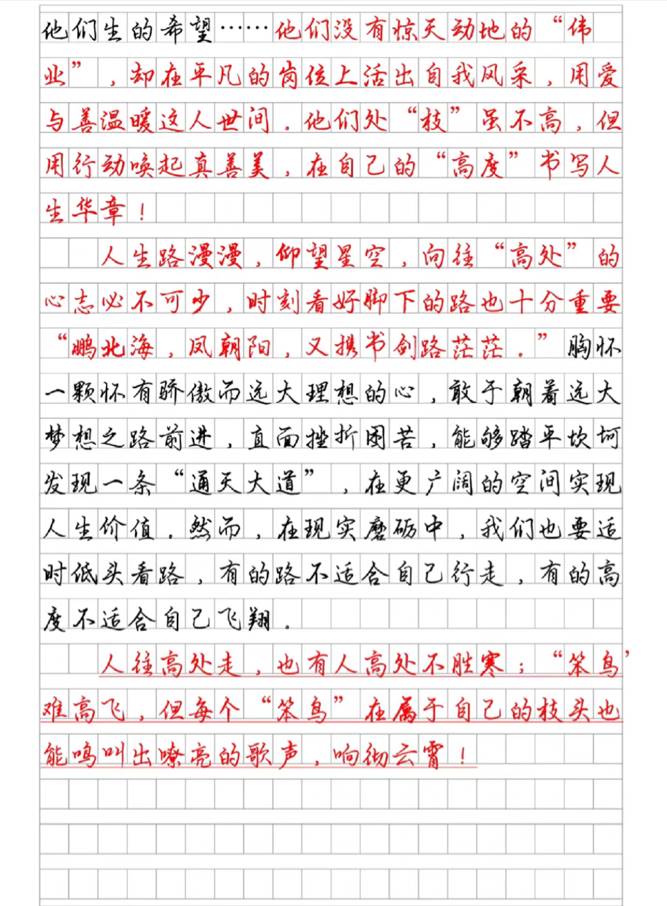 他们生的希望……他们没有惊天动地的“伟
业”，却在平凡的岗位上活出自我风采，用爱
与善温暖这人世间。他们处“枝”虽不高，但
用行动唤起真善美，在自己的“高度”书写人
生华章！
人生路漫漫，仰望星空，向往“高处”的
心志必不可少，时刻看好脚下的路也十分重要
“鹏北海，凤朝阳，又携书剑路茫茫。”胸怀
一颗怀有骄傲而远大理想的心，敢于朝着远大
梦想之路前进，直面挫折困苦，能够踏平坎坷
发现一条“通天大道”，在更广阔的空间实现
人生价值。然而，在现实磨砺中，我们也要适
时低头看路，有的路不适合自己行走，有的高
度不适合自己飞翔。
人往高处走，也有人高处不胜寒；“笨鸟’
难高飞，但每个“笨鸟”在属于自己的枝头也
能鸣叫出嘹亮的歌声，响彻云霄！